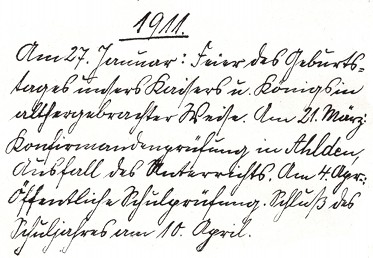 1911.
Am 27. Januar: Feier des Geburts-
tages unsers Kaisers u. Königs in
althergebrachter Weise. Am 21. März:
Konfirmandenprüfung in Ahlden,
Ausfall des Unterrichts. Am 4. Apr.:
Öffentliche Schulprüfung. Schluß des
Schuljahres am 10. April.